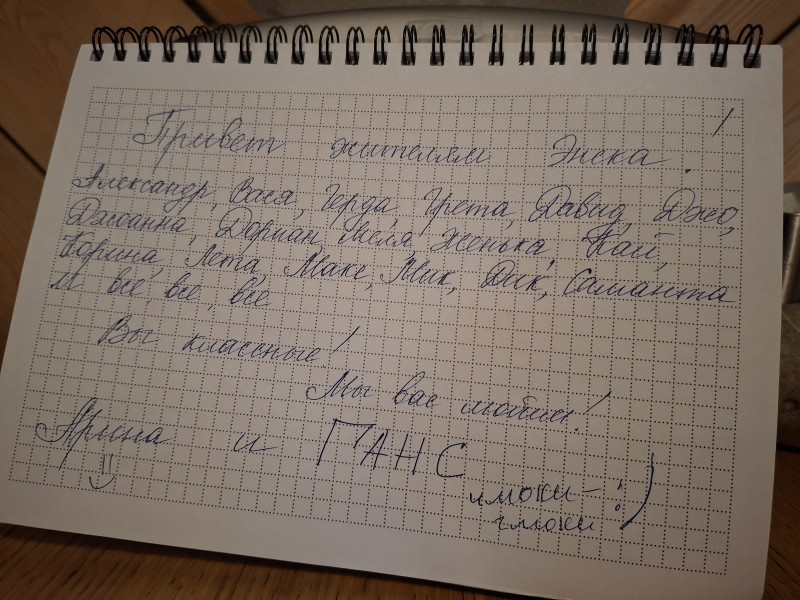 Привет жителям Энска!
Александр, Вася, Герда, Грета, Давид, Джо,
Джоанна, Дориан, Женька, Кай,
Корина, Лета, Макс, Мик, Дик, Саманта
и все, все, все
Вы классные!
Мы вас любим!
Арина и ГАНС
чмоки-
чмоки :)